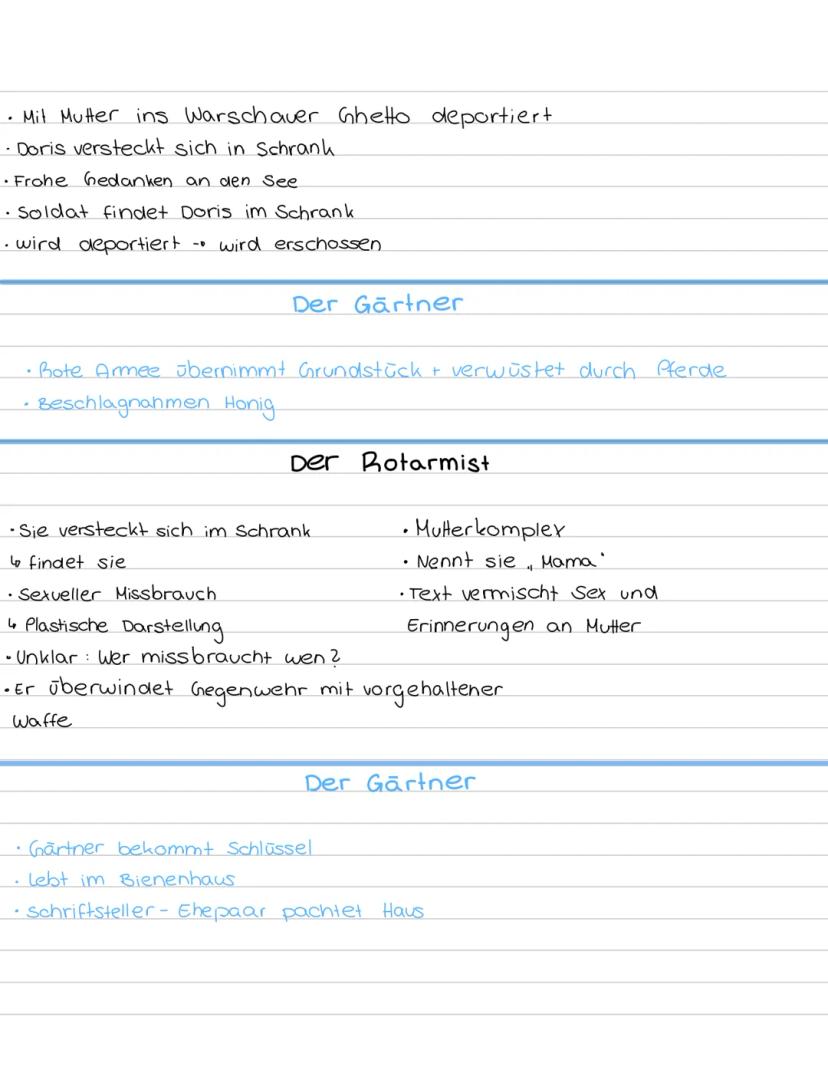 · Mit Mutter ins Warschauer Ghetto deportiert
· Doris versteckt sich in Schrank
· Frohe Gedanken an den See
· Soldat findet Doris im Schrank
· wird deportiert → wird erschossen
Der Gärtner
· Rote Armee übernimmt Grundstück + verwüstet durch Pferde
· Beschlagnahmen Honig
Der Rotarmist
· Sie versteckt sich im Schrank
↳ findet sie
· Sexueller Missbrauch
↳ Plastische Darstellung
· Unklar : Wer missbraucht wen?
· Er überwindet Gegenwehr mit vorgehaltener
Waffe
· Mutterkomplex
· Nennt sie „Mama"
· Text vermischt Sex und
Erinnerungen an Mutter
Der Gärtner
· Gärtner bekommt Schlüssel
· Lebt im Bienenhaus
· Schriftsteller - Ehepaar pachtet Haus